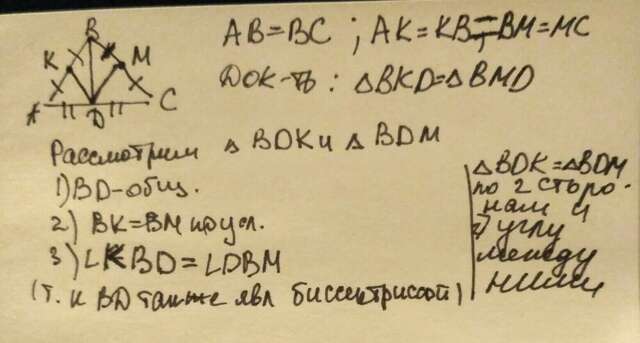 B
K M
A D C
AB=BC ; AK=KB=BM=MC
Док-ть : △BKD=△BMD
Рассмотрим △ BDK и △ BDM
1) BD-общ.
2) BK=BM по усл.
3) ∠KBD=∠DBM
(т. к BD также явл биссектрисой)
△BDK=△BDM
по 2 сторо-
нам и
углу
между
ними